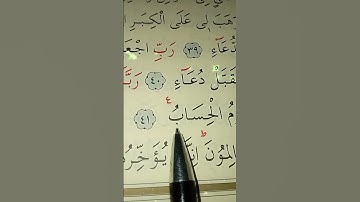 هَبَ لِى عَلَى الْكِبَرِ
دُّعَآءِ ﴿٣٩﴾ رَبِّ اجْعَ
قَبَّلْ دُعَآءِ ﴿٤٠﴾ رَبَّ
مُ الْحِسَابُ ع ﴿٤١﴾
لِمُونَ ط اِنَّ يُؤَخِّرُ